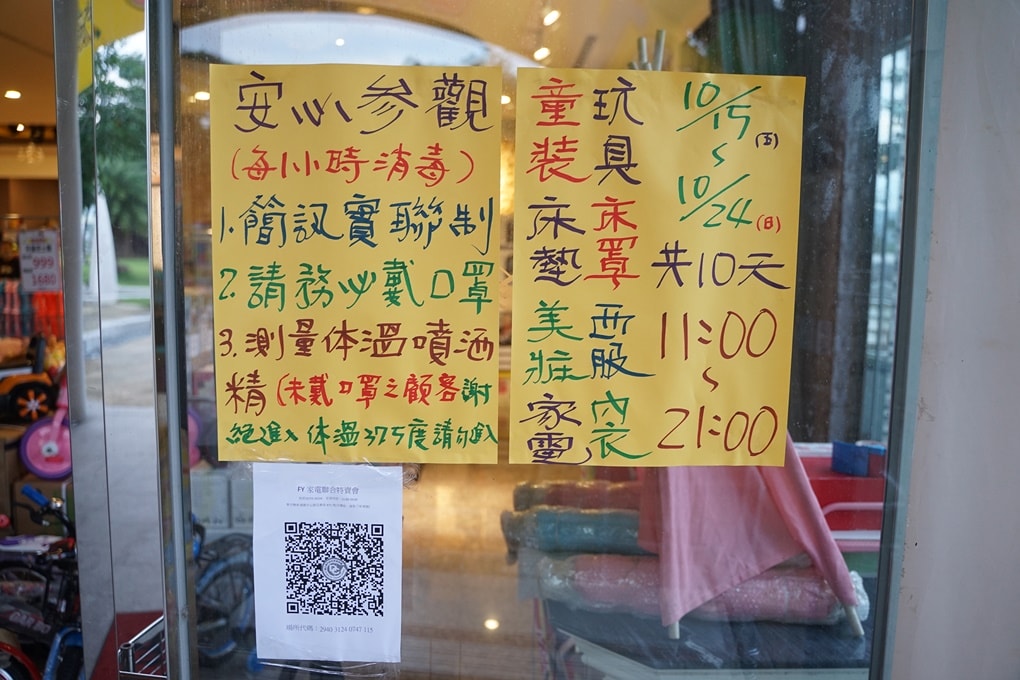 安心參觀
(每1小時消毒)
1.簡訊實聯制
2.請務必戴口罩
3.測量体溫噴酒
精(未戴口罩之顧客謝
絕進入 体溫37.5度請勿進入
童裝 玩具
床墊 床罩
美妝 西服
家電 內衣
10/15(五)
~
10/24(日)
共10天
11:00
~
21:00
FY 家電聯合特賣會
場所代碼:2940 3124 0747 115
999
1680